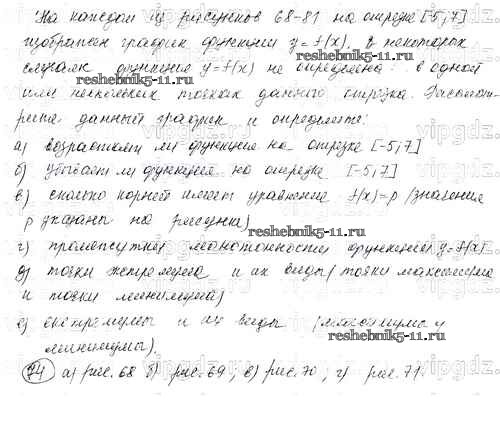 На каждом из рисунков 68-81 на отрезке [-5; 7]
изображен график функции y = f(x). В некоторых
случаях функция y = f(x) не определена в одной
или нескольких точках данного отрезка. Рассмот-
рите данный график и определите:
а) возрастает ли функция на отрезке [-5; 7]
б) убывает ли функция на отрезке [-5; 7]
в) сколько корней имеет уравнение f(x) = p /значения
p указаны на рисунки)
г) промежутки монотонности функции y = f(x)
д) точки экстремума и их виды (точки максимума
и точки минимума)
е) экстремумы и их виды (максимумы и
минимумы).
74 а) рис. 68 б) рис. 69, в) рис. 70, г) рис. 71.
reshebnik5-11.ru
reshebnik5-11.ru
reshebnik5-11.ru
reshebnik5-11.ru